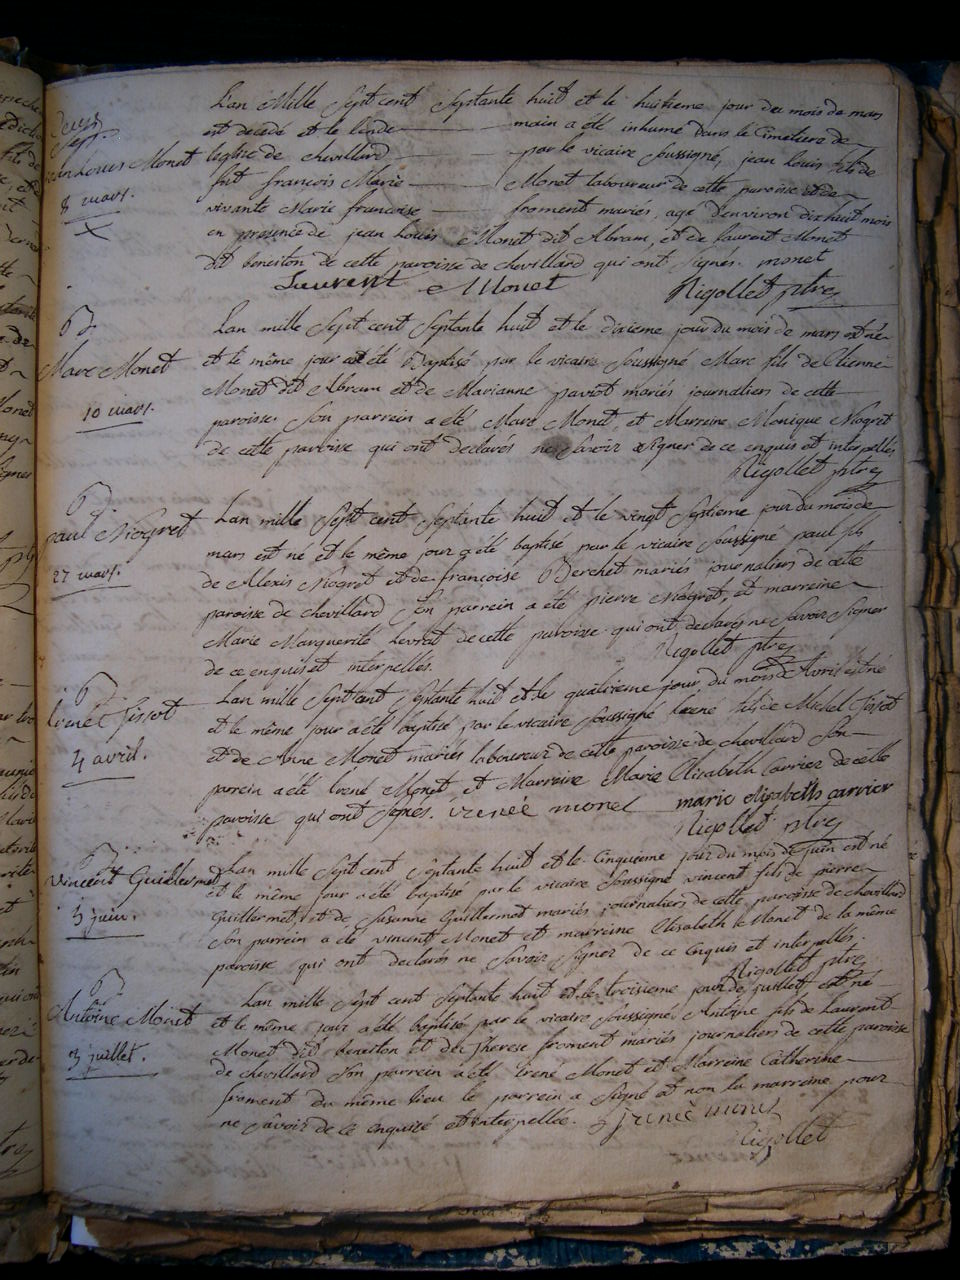 Lan Mille Sept cent Septante huit et le huitieme jour du mois de mars
Deces
Sept.
est decedé et le lende main a été inhumé dans le Cimetiere de
jean Louis Monet
leglise de chevillard par le vicaire soussigné, jean Louis fils de
fut françois Marie Monet laboureur de cette paroisse et de
8 mars.
vivante Marie françoise froment mariés, agé d'environ dix huit mois
en presence de jean Louis Monet dit Abram, et de Laurent Monet
dit beneiton de cette paroisse de chevillard qui ont signes. monet
Laurent Monet Rigollet ptre
B.
Lan mille Sept cent Septante huit et le dixieme jour du mois de mars est né
Marc Monet
et le même jour at été Baptisé par le vicaire soussigné Marc fils de Etienne
Monet dit Abram et de Marianne paviot mariés journaliers de cette
10 mars.
paroisse. Son parrein a été Marc Monet, et Marreine Monique Nogret
de cette paroisse qui ont declarés ne savoir signer de ce enquis et interpellés
Rigollet ptre
B
Lan mille Sept cent Septante huit et le vingt Septieme jour du mois de
paul Nogret
mars est né et le même jour a été baptisé par le vicaire soussigné paul fils
27 mars.
de Alexis Nogret et de françoise Berchet mariés journaliers de cette
paroisse de chevillard Son parrein a été pierre Nogret, et marreine
Marie Marguerite Levrat de cette paroisse qui ont declarés ne savoir signer
de ce enquis et interpelles. Rigollet ptre
B
Lan mille Sept cent Septante huit et le quatrieme jour du mois d'Avril est né
irené Tissot
et le même jour a été baptisé par le vicaire soussigné irené fils de Michel Tissot
et de Anne Monet mariés laboureur de cette paroisse de chevillard Son
4 avril.
parrein a été irené Monet et Marreine Marie Elisabeth Carrier de cette
paroisse qui ont signés. irenée monet marie elizabeth carrier
Rigollet ptre
B
Lan mille Sept cent Septante huit et le Cinquieme jour du mois de juin est né
vincent Guillermet
et le même jour a été baptisé par le vicaire soussigné vincent fils de pierre
Guillermet, et de Susanne Guillermet mariés journaliers de cette paroisse de chevillard
5 juin.
Son parrein a été vincent Monet et marreine Elisabeth Monet de la même
paroisse qui ont declarés ne savoir signer de ce enquis et interpellés.
Rigollet ptre
B
Lan mille Sept cent Septante huit et le troisieme jour de juillet est né
Antoine Monet
et le même jour a été baptisé par le vicaire soussigné Antoine fils de Laurent
Monet dit beneiton et de Therese froment mariés journaliers de cette paroisse
3 juillet.
de chevillard Son parrein a été irené Monet et Marreine Catherine
froment du même lieu le parrein a signé et non la marreine pour
ne savoir de ce enquise et interpellée. irenée monet
Rigollet